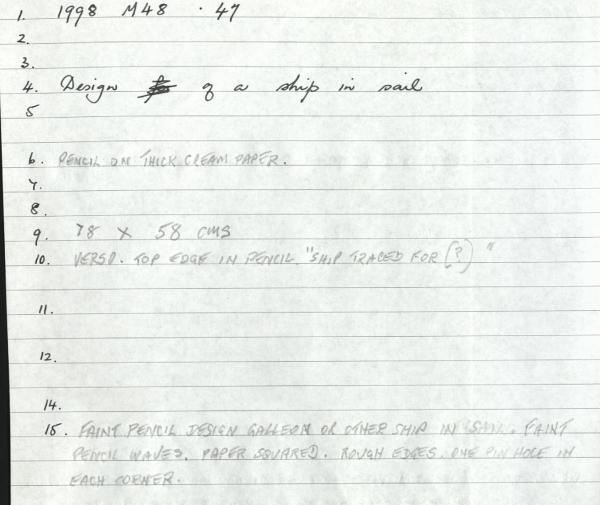 1. 1998 M48 . 47
2.
3.
4. Design for of a ship in sail
5
6. PENCIL ON THICK CREAM PAPER.
7.
8.
9. 78 x 58 cms
10. VERSO. TOP EDGE IN PENCIL. "SHIP TRACED FOR (?) "
11.
12.
14.
15. FAINT PENCIL DESIGN GALLEON OR OTHER SHIP IN SAIL. FAINT
PENCIL WAVES. PAPER SQUARED. ROUGH EDGES. ONE PIN HOLE IN
EACH CORNER.